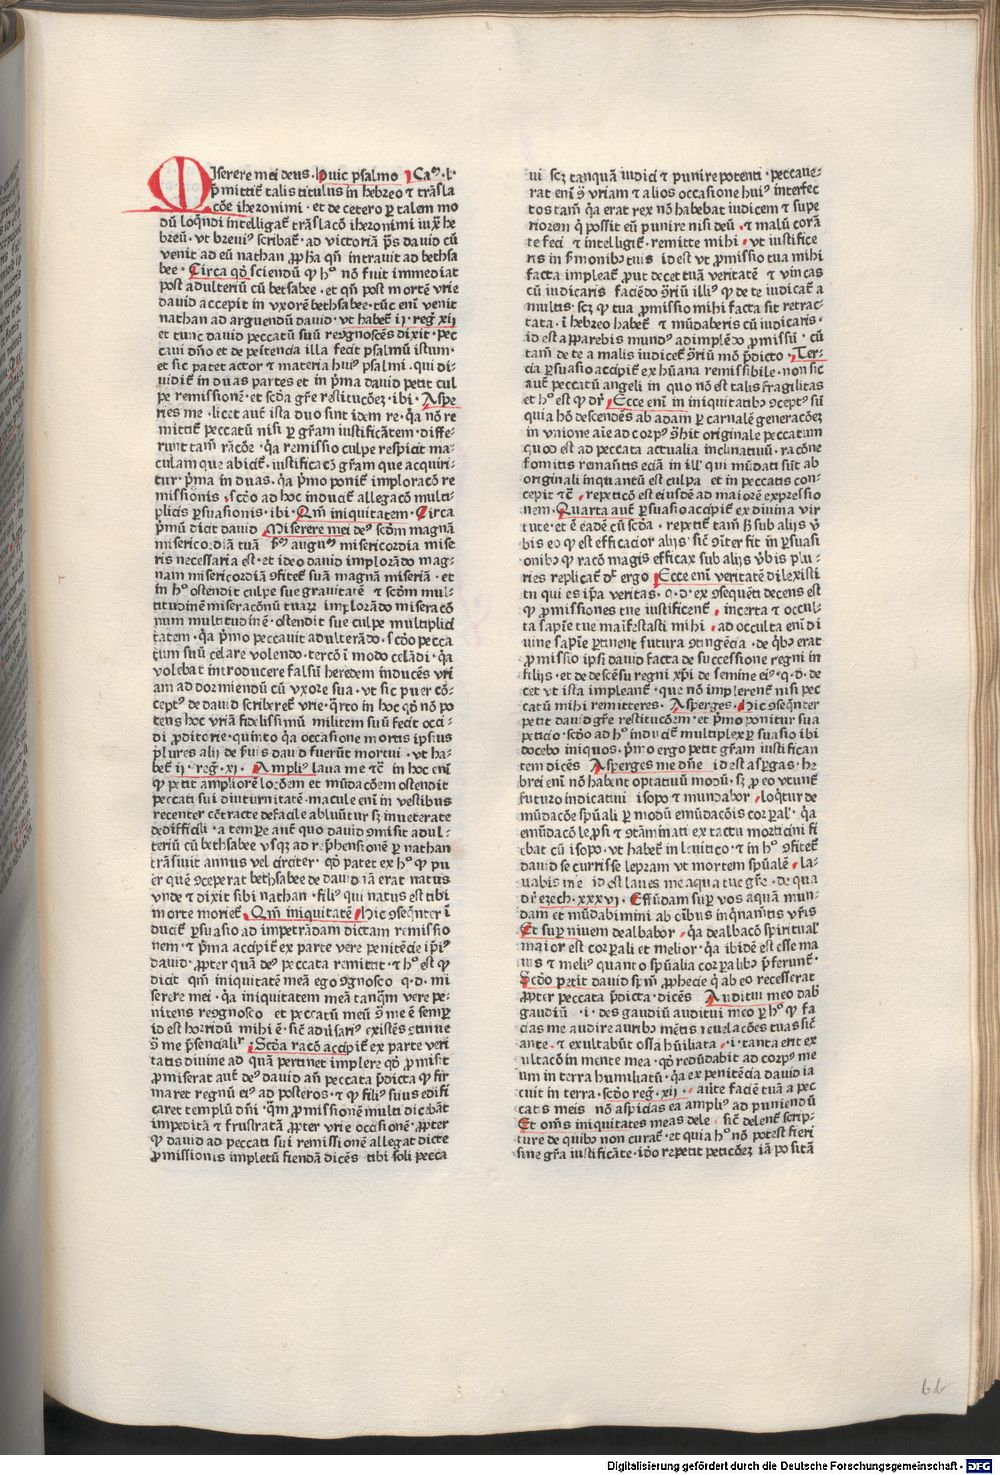 MIserere mei deus. huic psalmo Caᵐ. l.
p̄mittit᷑ talis titulus in hebreo ⁊ trāsla
cōe iheronimi · et de cetero ꝑ talem mo
dū loq̄ndi intelligat᷑ trāslacō iheronimi iux̄ he
breū · vt breuiꝰ scribat᷑ · ad victoriā p̄s dauid cū
venit ad eū nathan ꝓpha qn̄ intrauit ad bethsa
bee · Circa qd̄ sciendū ꝙ hᵒ nō fuit immediat
post adulteriū cū betsabee · et qn̄ post mortē vrie
dauid accepit in vxorē bethsabee · tūc enī venit
nathan ad arguendū dauid · vt habet᷑ ij · reg᷑ xij
et tunc dauid peccatū suū recognoscēs dixit · pec
caui dn̄o et de pēitencia illa fecit psalmū istum ·
et sic patet actor ⁊ materia huiꝰ psalmi · qui di-
uidit᷑ in duas partes et in p̄ma dauid petit cul
pe remissionē · et scd̄a gr̄e restitucōeȝ · ibi · Aspe
ries me · licet aut᷑ ista duo sint idem re · q̄a nō re
mittit᷑ peccatū nisi ꝑ gr̄am iustificātem · diffe-
runt tam̄ rac̄oe · q̄a remissio culpe respicit ma-
culam que abicit᷑ · iustificacō gr̄am que acquiri-
tur · p̄ma in duas · q̄a p̄mo ponit᷑ imploracō re
missionis · scd̄o ad hoc inducit᷑ allegacō multi-
plicis ꝑsuasionis · ibi · Qm̄ iniquitatem · Circa
p̄mū dicit dauid Miserere mei deꝰ scd̄m magnā
misericordiā tuā p̄ꝰ augꝰ misericordia mise
ris necessaria est · et ideo dauid implorādo mag-
nam misericordiā ꝯfitet᷑ suā magnā miseriā · et
in hᵒ ostendit culpe sue grauitatē ⁊ scd̄m mul-
titudinē miseracōnū tuarꝝ implorādo miseracō
num multitudinē · ostendit sue culpe multiplici
tatem · q̄a p̄mo peccauit adulterādo · scd̄o pecca
tum suū celare volendo · tercō ī modo celādi · q̄a
volebat introducere falsū heredem inducēs vri
am ad dormiendū cū vxore sua · vt sic puer cō-
ceptꝰ de dauid scriberet᷑ vrie · q̄rto in hoc qd̄ nō po
tens hoc vriā fidelissimū militem suū fecit occi-
di ꝓditorie · quinto q̄a occasione mortis ipsius
plures alij de ẜuis dauid fuerūt mortui · vt ha-
bet᷑ ij · reg᷑ · xi · Ampliꝰ laua me ⁊c̄ in hoc enī
ꝙ petit ampliorē locōem et mūdacōem ostendit
peccati sui diuturnitatē · macule enī in vestibus
recenter cōtracte defacile abluūtur sȝ inueterate
dedifficili · a tempore aut᷑ quo dauid ꝯmisit adul-
teriū cū bethsabee vsqȝ ad rep̄hensionē ꝑ nathan
trāsiuit annus vel circiter · qd̄ patet ex hᵒ ꝙ pu
er quē ꝯceperat bethsabee de dauid iā erat natus
vnde ⁊ dixit sibi nathan · filiꝰ qui natus est tibi
morte moriet᷑ · Qm̄ iniquitatē Hic ꝯseq̄nter ī
ducit᷑ ꝑsuasio ad impetrādam dictam remissio
nem · ⁊ p̄ma accipit᷑ ex parte vere penitēcie ip̄iꝰ
dauid · ꝓpter quā deꝰ peccata remittit · ⁊ hᵒ est ꝙ
dicit qm̄ iniquitatē meā ego ꝯgnosco q · d · mi
serere mei · q̄a iniquitatem meā tanq̄m vere pe-
nitens recognosco et peccatū meū ꝯ me ē semꝑ
id est horridū mihi ē · sic̄ adūsariꝰ existēs ꝯtinue
ꝯ me p̄sencialiᷣ Scd̄a racō accipit᷑ ex parte veri
tatis diuine ad quā pertinet implere qd̄ ꝓmisit
ꝓmiserat aut᷑ deꝰ dauid an̄ peccata p̄dicta ꝙ fir
maret regnū eiꝰ ad posteros · ⁊ ꝙ filiꝰ suius edifi
caret templū dn̄i · q̄m ꝓmissionē multi dicebāt
impeditā ⁊ frustratā ꝓpter vrie occasionē · ꝓpter
ꝙ dauid ad peccati sui remissionē allegat dicte
ꝓmissionis impletū fiendā dicēs tibi soli pecca
ui scȝ tanquā iudici ⁊ punire potenti · peccaue-
rat enī ꝯ vriam ⁊ alios occasione huiꝰ interfec
tos tam̄ q̄a erat rex nō habebat iudicem ⁊ supe
riorem q̄ possit eū punire nisi deū · ⁊ malū corā
te feci ⁊ intelligit᷑ · remitte mihi · vt iustifice
ris in ẜmonibꝰ tuis id est vt ꝓmissio tua mihi
facta impleat᷑ ꝓut decet tuā veritatē ⁊ vincas
cū iudicaris faciēdo ꝯriū illiꝰ ꝙ de te iudicat᷑ a
multis · scȝ ꝙ tua ꝓmissio mihi facta sit retrac-
tata · ī hebreo habet᷑ ⁊ mūdaberis cū iudicaris ·
id est apparebis mundꝰ adimplēdo ꝓmissū · cū
tam̄ de te a malis iudicet᷑ ꝯriū mō p̄dicto · Ter-
cia ꝑsuasio accipit᷑ ex hūana remissibile · non sic
aut᷑ peccatū angeli in quo nō est talis fragilitas
et hᵒ est ꝙ dr̄ Ecce enī in iniquitatibꝰ ꝯceptꝰ sū
quia hō descendēs ab adam ꝑ carnalē generacōeȝ
in vnione aīe ad corpꝰ ꝯhit originale peccatum
quod est ad peccata actualia inclinatiuū · racōne
fomitis remanētis eciā in ill᷑ qui mūdati sūt ab
originali inquantū est culpa et in peccatis con-
cepit ⁊c̄ · repeticō est eiusdē ad maiorē expressio
nem · Quarta aut᷑ ꝑsuasio accipit᷑ ex diuina vir
tute · et ē eadē cū scd̄a · repetit᷑ tam̄ sȝ sub alijs v̄
bis eo ꝙ est efficacior alijs · sic̄ ꝯīter fit in ꝑsuasi
onibꝰ ꝙ racō magis efficax sub alijs v̄bis plu-
ries replicat᷑ dt᷑ ergo Ecce enī veritatē dilexisti
tu qui es ip̄a veritas · q · d · ex ꝯsequēti decens est
ꝙ ꝓmissiones tue iustificent᷑ · incerta ⁊ occul-
ta sapīe tue maīfestasti mihi · ad occulta enī di
uine sapīe ꝑtinent futura ꝯtingēcia · de q̄bꝰ erat
ꝓmissio ipsi dauid facta de successione regni in
filijs · et de descēsu regni xp̄i de semine eiꝰ · q · d · de
cet vt ista impleant᷑ · que nō implerent᷑ nisi pec
catū mihi remitteres · Asperges · Hic ꝯseq̄nter
petit dauid gr̄e restitucōem · et p̄mo ponitur sua
peticio · scd̄o ad hᵒ inducit᷑ multiplex ꝑsuasio ibi
docebo iniquos · p̄mo ergo petit gr̄am iustifican
tem dicēs Asperges me dn̄e id est aspergas · he
brei enī nō habent optatiuū modū · sȝ ꝓ eo vtunt᷑
futuro indicatiui isopo ⁊ mundabor · loq̄tur de
mūdacōe spūali ꝑ modū emūdacōis corꝑal᷑ · q̄a
emūdacō leprosi ⁊ ꝯtāminati ex tactu morticini fi
ebat cū isopo · vt habet᷑ in leuitico · ⁊ in hᵒ ꝯfitet᷑
dauid se currisse lepram vt mortem spūalē · la-
uabis me id est laues me aqua tue gr̄e · de qua
dr̄ ezech · xxxvi · Effūdam suꝑ vos aquā mun-
dam et mūdabimini ab oībus inq̄namētis vr̄is
Et suꝑ niuem dealbabor · q̄a dealbacō spiritualᷣ
maior est corꝑali et melior · q̄a ibidē est esse ma
ius ⁊ meliꝰ quanto spūalia corꝑalibꝰ p̄ferunt᷑ ·
Scd̄o petit dauid sp̄m ꝓphecie q̄ ab eo recesserat
ꝓpter peccata p̄dicta · dicēs Auditui meo dabꝭ
gaudiū · i · des gaudiū auditui meo ꝑ hᵒ ꝙ fa
cias me audire auribꝰ mētis reuelacōes tuas sic̄
ante · ⁊ exultabūt ossa hūiliata · i · tanta erit ex
ultacō in mente mea · qd̄ redūdabit ad corpꝰ me
um in terra humiliatū · q̄a ex penitēcia dauid ia
cuit in terra · scd̄o reg᷑ · xij · aute faciē tuā a pec
catis meis nō aspicias ea ampliꝰ ad puniendū
Et om̄s iniquitates meas dele sic̄ delent᷑ scrip-
ture de quibꝰ non curat᷑ · et quia hᵒ nō potest fieri
sine gr̄a iustificāte · ido repetit peticōeȝ iā positā
bb
Digitalisierung gefördert durch die Deutsche Forschungsgemeinschaft · DFG